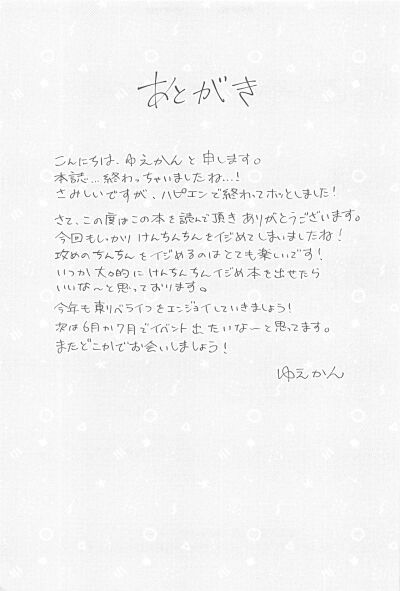 あとがき
こんにちは、ゆえかんと申します。
本誌…終わっちゃいましたね…!
さみしいですが、ハピエンで終わってホッとしました!
さて、この度はこの本を読んで頂きありがとうございます。
今回もしっかりけんちんちんをイジめてしまいましたね!
攻めのちんちんをイジめるのはとても楽しいです!
いつか 的にけんちんちんイジめ本を出せたら
いいな〜と思っております。
今年も東リベライフをエンジョイしていきましょう!
次は6月か7月でイベント出たいなーと思ってます。
またどこかでお会いしましょう!
ゆえかん